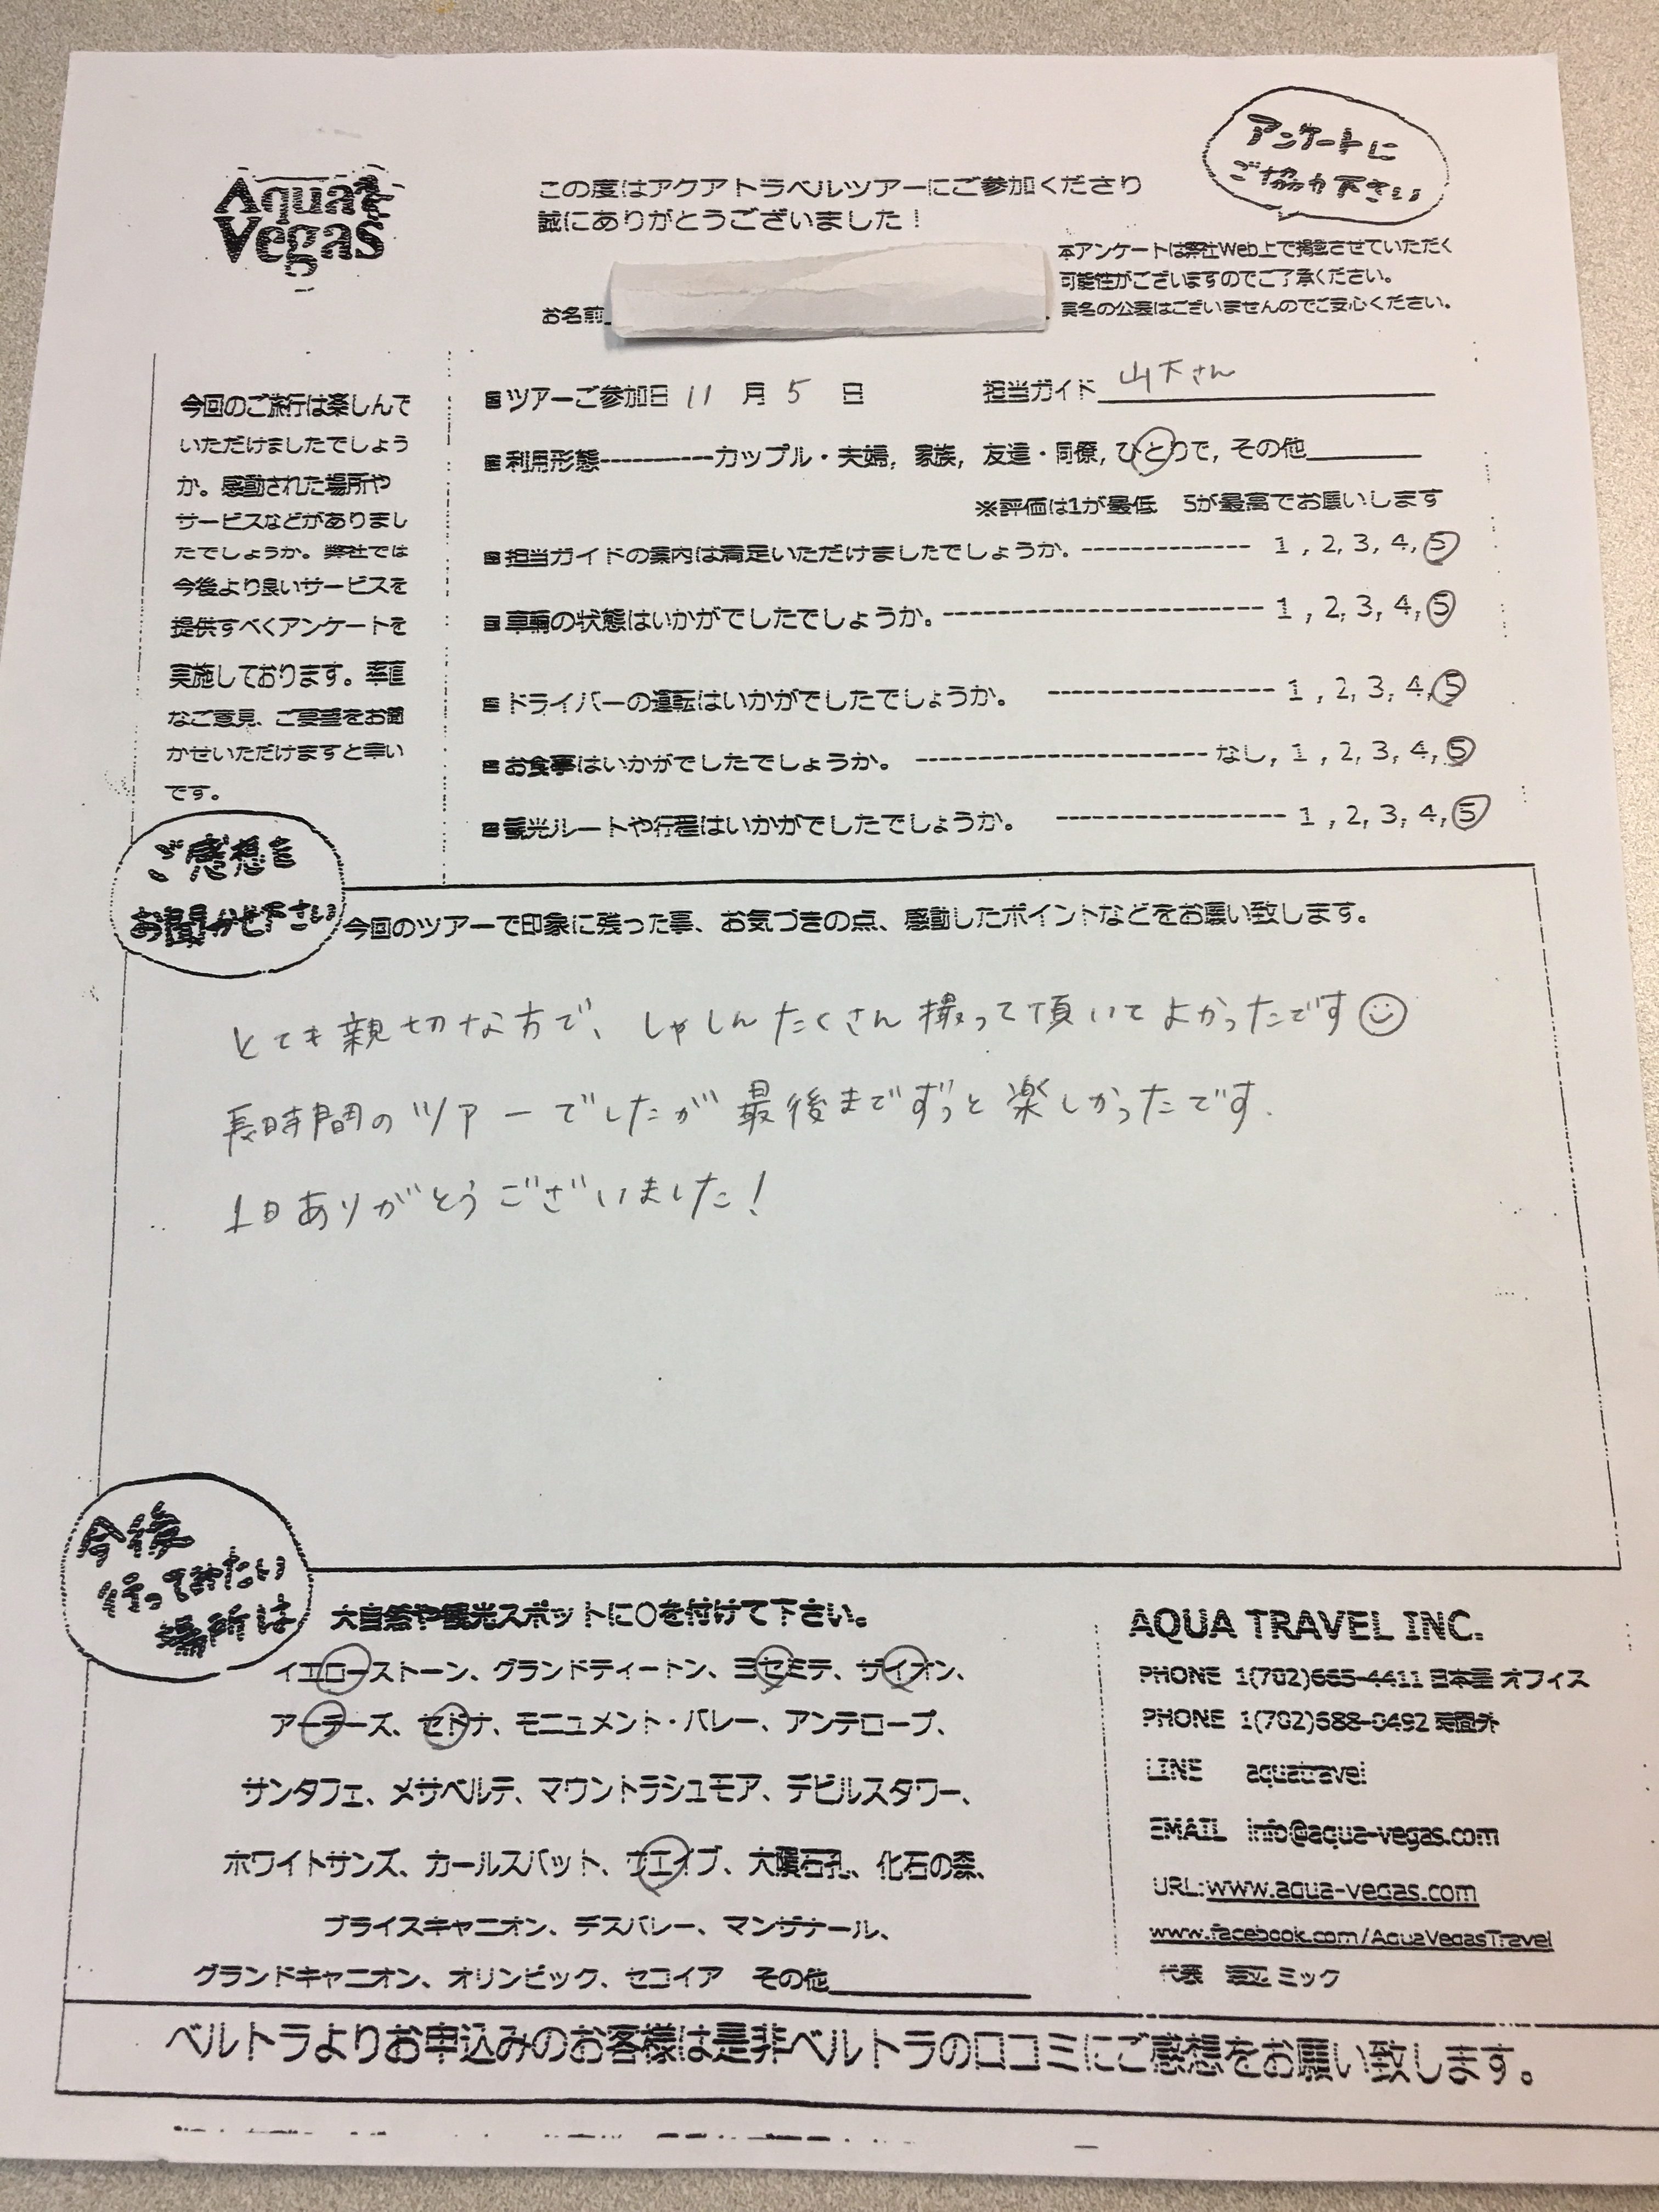 Aqua
Vegas
この度はアクアトラベルツアーにご参加くださり
誠にありがとうございました！
アンケートに
ご協力下さい
本アンケートは弊社Web上で掲載させていただく
可能性がございますのでご了承ください。
実名の公表はございませんのでご安心ください。
お名前
今回のご旅行は楽しんで
いただけましたでしょう
か。感動された場所や
サービスなどがありまし
たでしょうか。弊社では
今後より良いサービスを
提供すべくアンケートを
実施しております。率直
なご意見、ご要望をお聞
かせいただけますと幸い
です。
■ツアーご参加日 11 月 5 日 担当ガイド 山下さん
■利用形態-----------カップル・夫婦, 家族, 友達・同僚, ひとりで, その他
※評価は1が最低 5が最高でお願いします
■担当ガイドの案内は満足いただけましたでしょうか。-------------- 1 , 2, 3, 4, 5
■車輌の状態はいかがでしたでしょうか。--------------------------- 1 , 2, 3, 4, 5
■ドライバーの運転はいかがでしたでしょうか。 ------------------- 1 , 2, 3, 4, 5
■お食事はいかがでしたでしょうか。 ------------------------なし, 1 , 2, 3, 4, 5
■観光ルートや行程はいかがでしたでしょうか。 ------------------- 1 , 2, 3, 4, 5
ご感想を
お聞かせ下さい
今回のツアーで印象に残った事、お気づきの点、感動したポイントなどをお願い致します。
とても親切な方で、しゃしんたくさん撮って頂いてよかったです☺
長時間のツアーでしたが最後までずっと楽しかったです.
1日ありがとうございました！
今後
行ってみたい
場所は
大自然や観光スポットに○を付けて下さい。
イエローストーン、グランドティートン、ヨセミテ、ザイオン、
アーチーズ、セドナ、モニュメント・バレー、アンテロープ、
サンタフェ、メサベルデ、マウントラシュモア、デビルスタワー、
ホワイトサンズ、カールスバット、ザエイブ、大隕石孔、化石の森、
ブライスキャニオン、デスバレー、マンザナール、
グランドキャニオン、オリンピック、セコイア その他
AQUA TRAVEL INC.
PHONE 1(702)665-4411 日本語 オフィス
PHONE 1(702)688-0492 時間外
LINE aquatravel
EMAIL info@aqua-vegas.com
URL:www.aqua-vegas.com
www.facebook.com/AquaVegasTravel
代表 ミック
ベルトラよりお申込みのお客様は是非ベルトラの口コミにご感想をお願い致します。